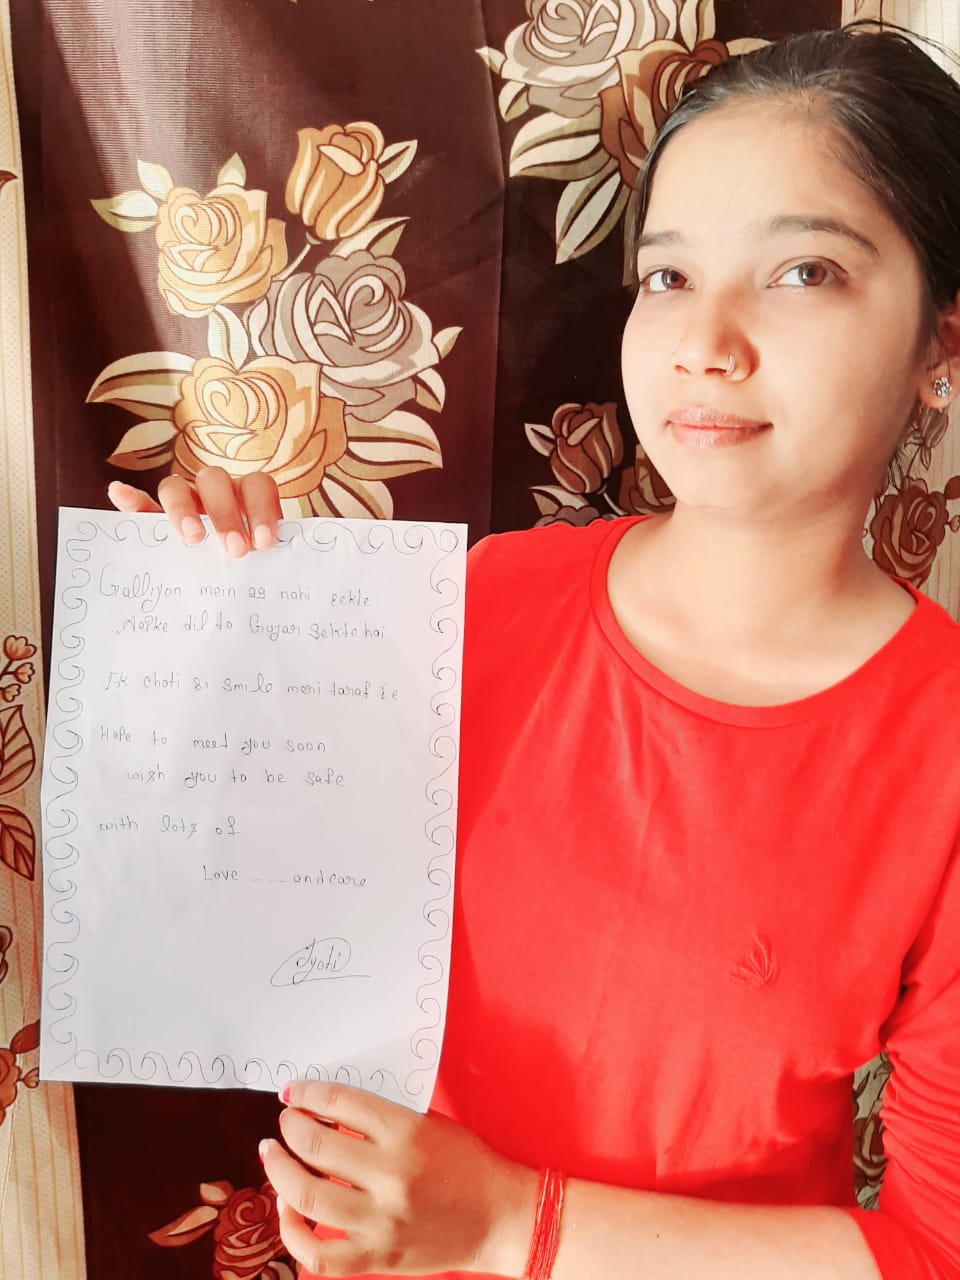 Galliyon mein aa nahi sekte
Aapke dil to Gujar Sekte hai
Ik choti si smile meri taraf se
Hope to meet you soon
wish you to be safe
with lots of
Love --- and care
Jyoti